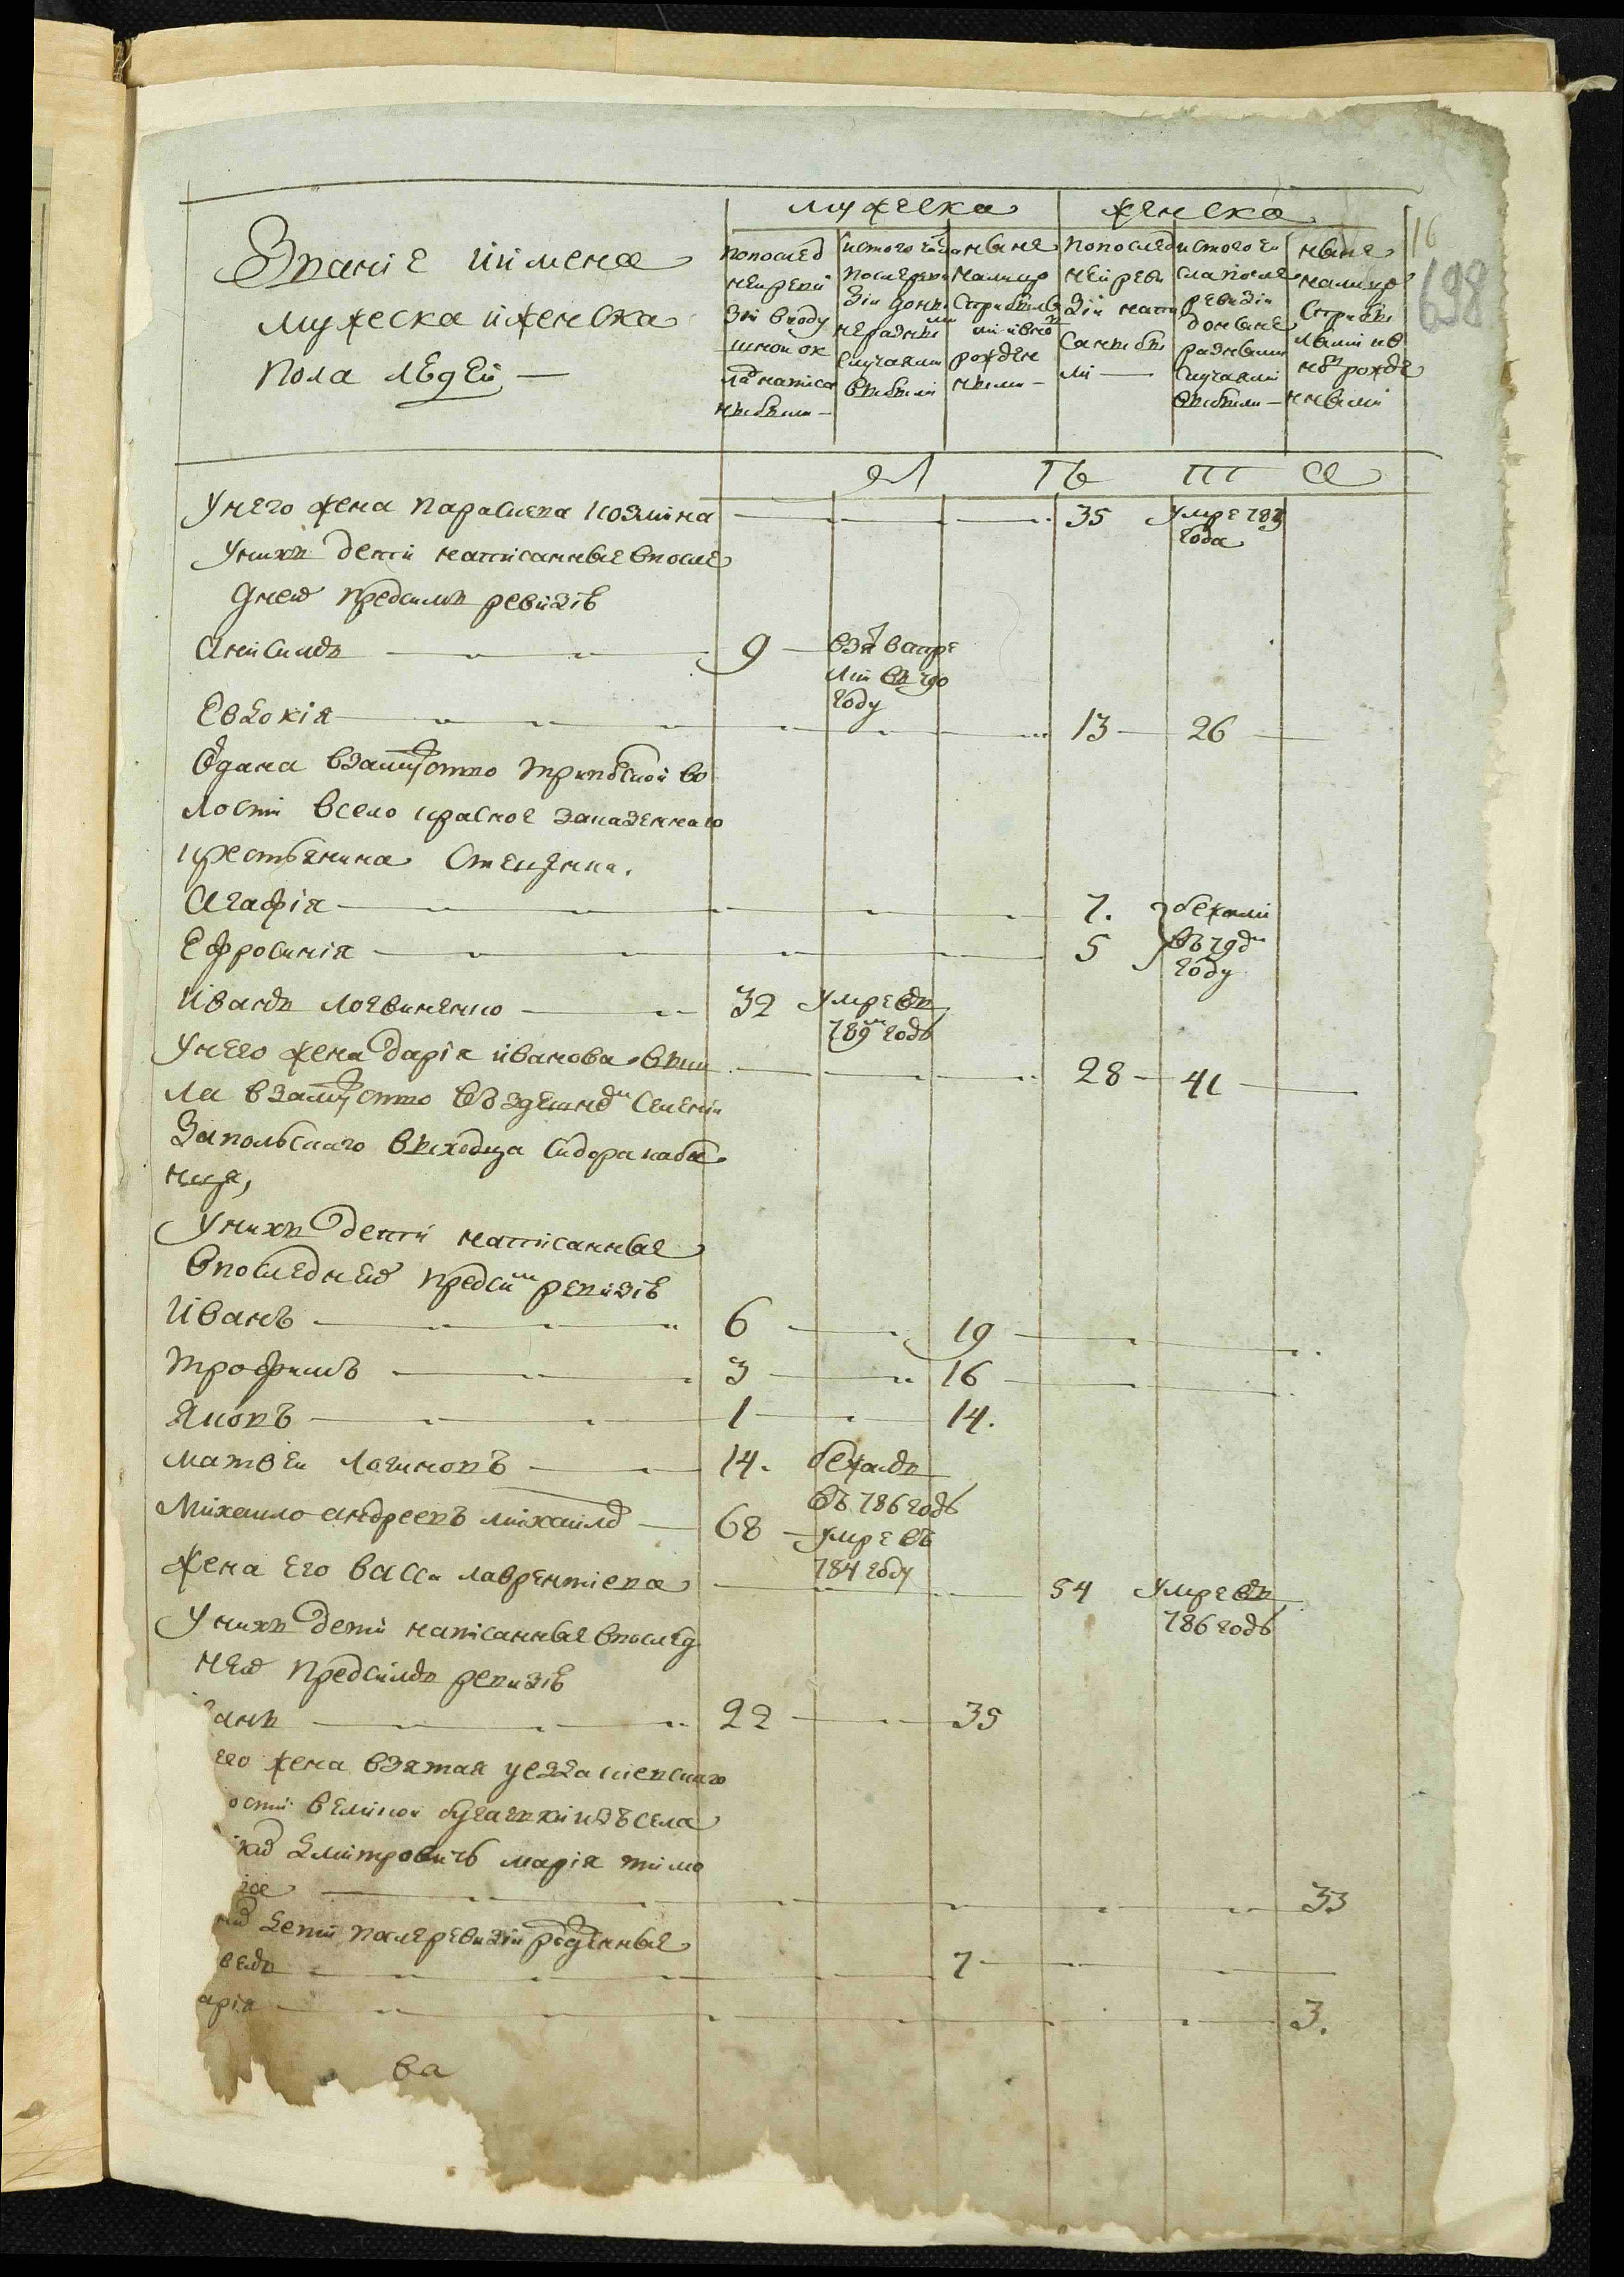 16
698
Званіе и имена
мужеска и женска
пола людей
мужеска
женска
по послед
ней реви
зіи в поду
шной ок
лад написа
ны были
ис того числа
после реви
зіи до ны
не разными
случаями
выбыли
ныне
на лицо
с прибылы
ми и внов
рожден
ными
по послед
ней реви
зіи напи
саны бы
ли
ис того чи
сла после
ревизіи
до ныне
разными
случаями
выбыли
ныне
на лицо
с прибы
лыми и в
нов рожде
нными
Л Т
У него жена Парасцева Козмина 35 умре 787
года
У них дети написанные в после
дней пред симъ ревизіѣ
Анисимъ 9 взят в апре
ли въ 790
году
Евдокія 13 26
Отдана в замужство Трипбской во
лости в село Красное за казенного
крестьянина Стеценка.
Агафія 7. бежали
Ефросинія 5 въ 79
году
Иванъ Логвиненко 32 умре въ
789м годѣ
У него жена Дарія Иванова выш 28 41
ла в замужство въ здешнем селеніи
за польскаго выходца Сидора Каба
нця,
У них дети написанные
в последней пред сим ревизіѣ
Иванъ 6 19
Трофимъ 3 16
Яковъ 1 14.
Матвѣй Логиновъ 14. бежалъ
въ 786 годѣ
Михайло Андреевъ Михайло 68 умре въ
784 году
жена его Васса Лаврентіева 54 умре въ
786 годѣ
У них дети написанные в послед
ней пред симъ ревизіѣ
ванъ 22 35
его жена взятая уезда Кіевского
ости Великой Бугаевки изъ села
Дмитровичъ Марія Тимо
33
дети после ревизіи рожденные
7
арія 3.
ва